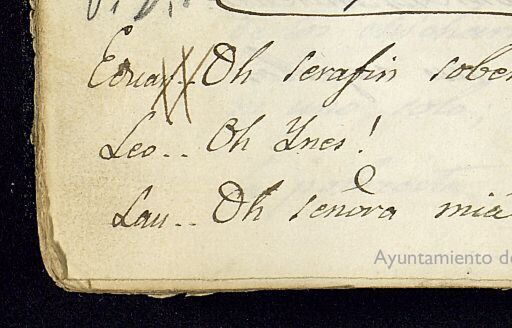 Eduar.. Oh serafin sober
Leo.. Oh Ynes!
Lau.. Oh senora mia
Ayuntamiento de